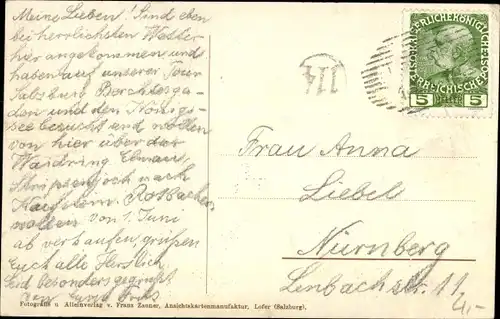 Meine Lieben! Sind eben
bei herrlichsten Wetter
hier angekommen und
haben auf unserer Tour
Salzburg Berchtesga-
den und den Königs-
see besucht und wollen
von hier über das
Waidring Elmau,
Stripsenjoch nach
wollen von 1. Juni
ab verkaufen, grüßen
Euch alle Herzlich
Seid besonders gegrüßt
von Eurem Fritz
114
KAISERLICHE KÖNIGLICHE
ÖSTERREICHISCHE POST
5 HELLER 5
Frau Anna
Liebel
Nürnberg
Lenbachstr. 11
4,-
Fotografie u. Alleinverlag v. Franz Zauner, Ansichtskartenmanufaktur, Lofer (Salzburg).